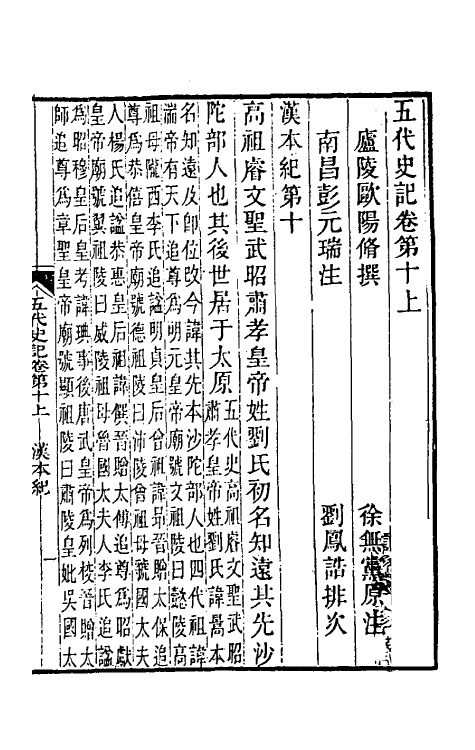 五代史記卷第十上
廬陵歐陽脩撰 徐無黨原注
南昌彭元瑞注 劉鳳誥排次
漢本紀第十
高祖睿文聖武昭肅孝皇帝姓劉氏初名知遠其先沙
陀部人也其後世居于太原
五代史高祖睿文聖武昭
肅孝皇帝姓劉氏諱暠本
名知遠及卽位改今諱其先本沙陀部人也四代祖諱
湍帝有天下追尊爲明元皇帝廟號文祖陵曰懿陵高
祖母隴西李氏追諡明貞皇后曾祖諱昂晉贈太保追
尊爲恭僖皇帝廟號德祖陵曰沛陵曾祖母虢國太夫
人楊氏追諡恭惠皇后祖諱僎晉贈太傅追尊爲昭獻
皇帝廟號翼祖陵曰威陵祖母魯國太夫人李氏追諡
爲昭穆皇后皇考諱琠事後唐武皇帝爲列校晉贈太
師追尊爲章聖皇帝廟號顯祖陵曰肅陵皇妣吳國太
五代史記卷第十上 漢本紀 一